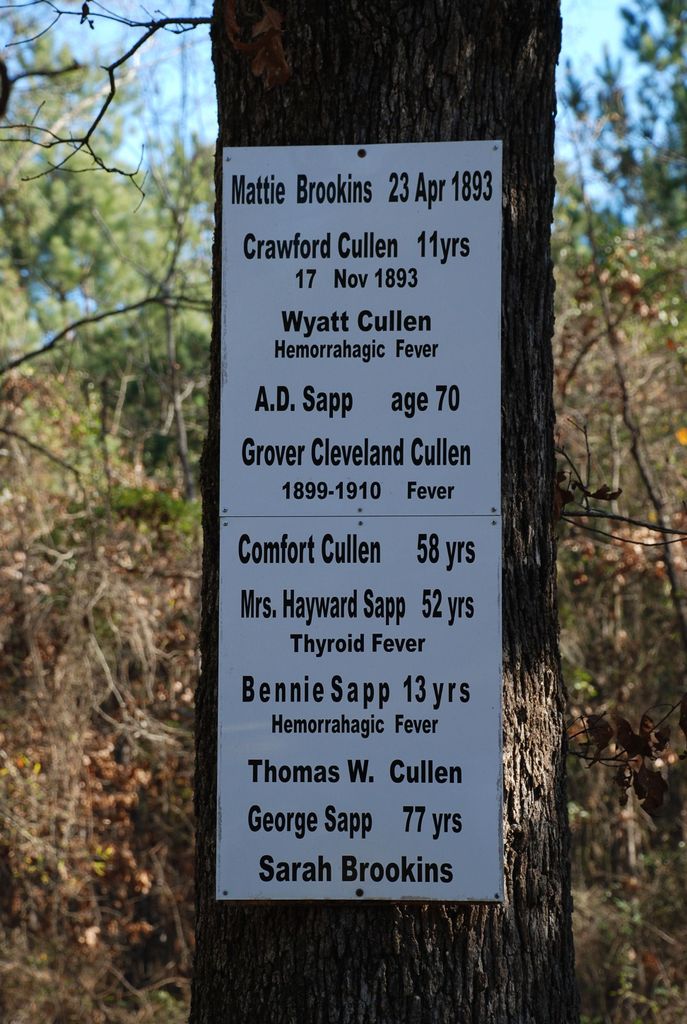 Mattie Brookins 23 Apr 1893
Crawford Cullen 11yrs
17 Nov 1893
Wyatt Cullen
Hemorrahagic Fever
A.D. Sapp age 70
Grover Cleveland Cullen
1899-1910 Fever
Comfort Cullen 58 yrs
Mrs. Hayward Sapp 52 yrs
Thyroid Fever
Bennie Sapp 13 yrs
Hemorrahagic Fever
Thomas W. Cullen
George Sapp 77 yrs
Sarah Brookins